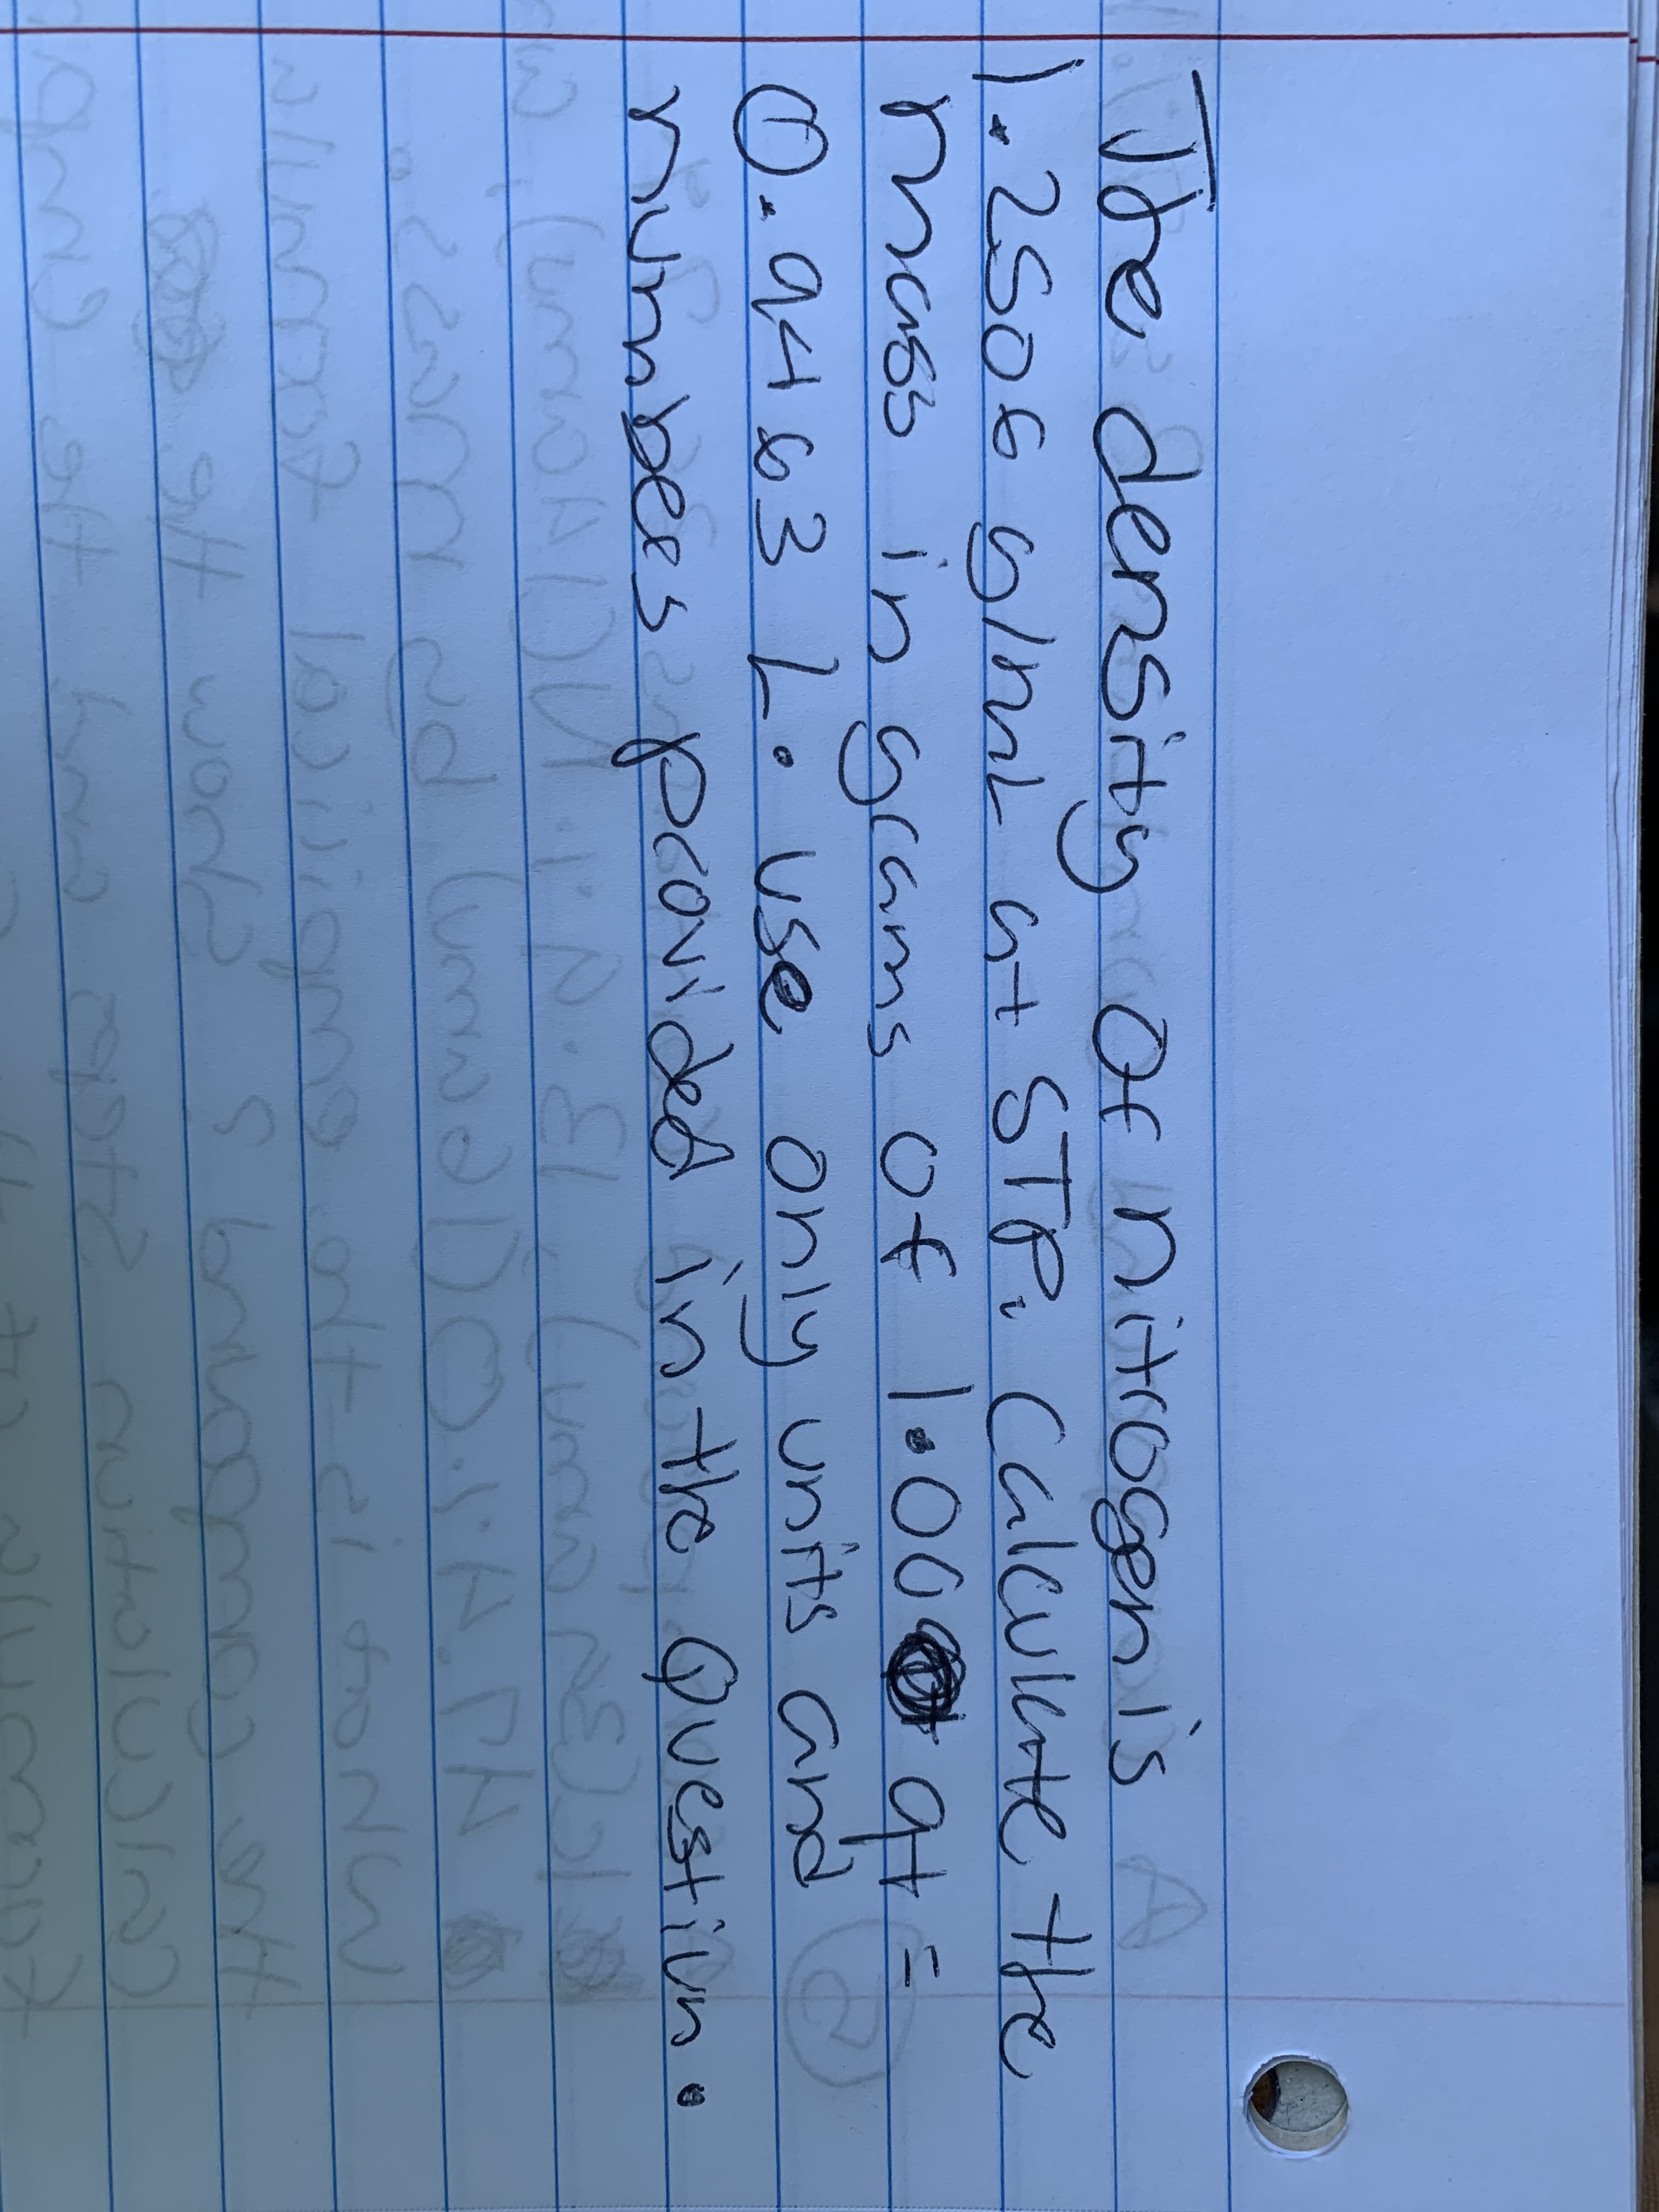 The density of nitrogen is
1.2506 g/mL at STP. Calculate the
mass in grams of 1.00 qt =
0.9463 L. use only units and
numbers provided in the Question.